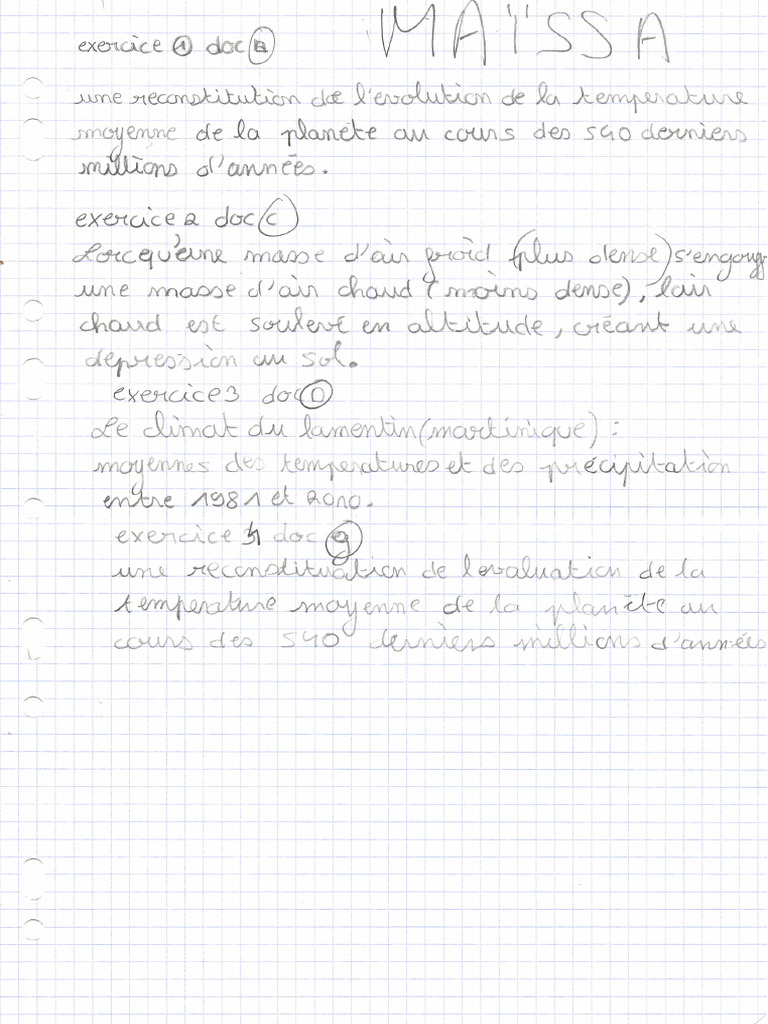 MAÏSSA
exercice 1 doc B
une reconstitution de l'evolution de la temperature
moyenne de la planète au cours des 540 derniers
millions d'années.
exercice 2 doc C
Lorcqu'une masse d'air froid (plus dense) s'engouf
une masse d'air chaud (moins dense), l'air
chaud est soulevé en altitude, créant une
depression au sol.
exercice 3 doc D
Le climat du lamentin (martinique) :
moyennes des temperatures et des précipitation
entre 1981 et 2010.
exercice 4 doc g
une reconstituation de levaluation de la
temperature moyenne de la planète au
cours des 540 derniers millions d'années